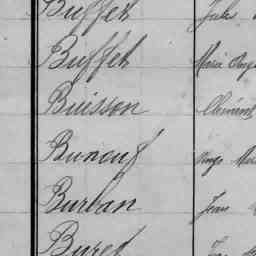 Buffet Jules
Buffet Marie Ang
Buisson Clément
Buneuf Ange Mar
Burban Jean
Buret